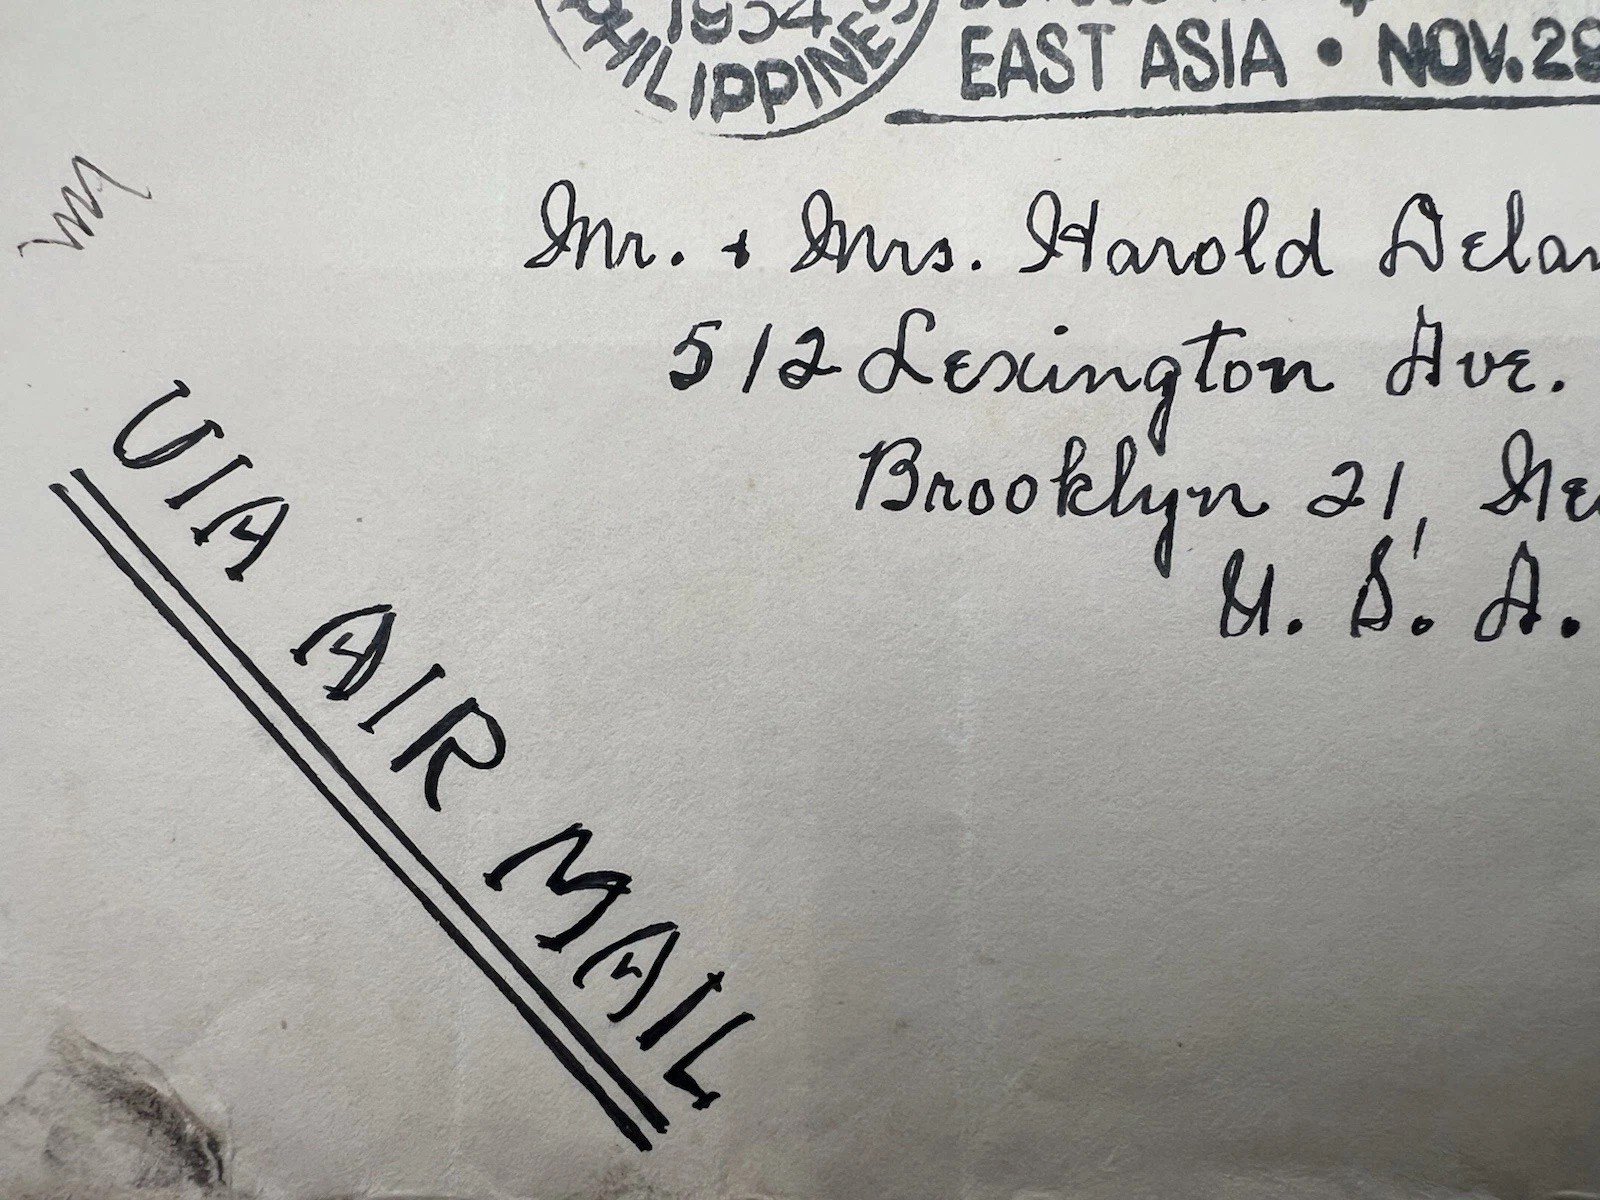 1954
PHILIPPINES
EAST ASIA • NOV. 29
Mr. + Mrs. Harold
512 Lexington Ave.
Brooklyn 21,
U. S. A.
VIA AIR MAIL